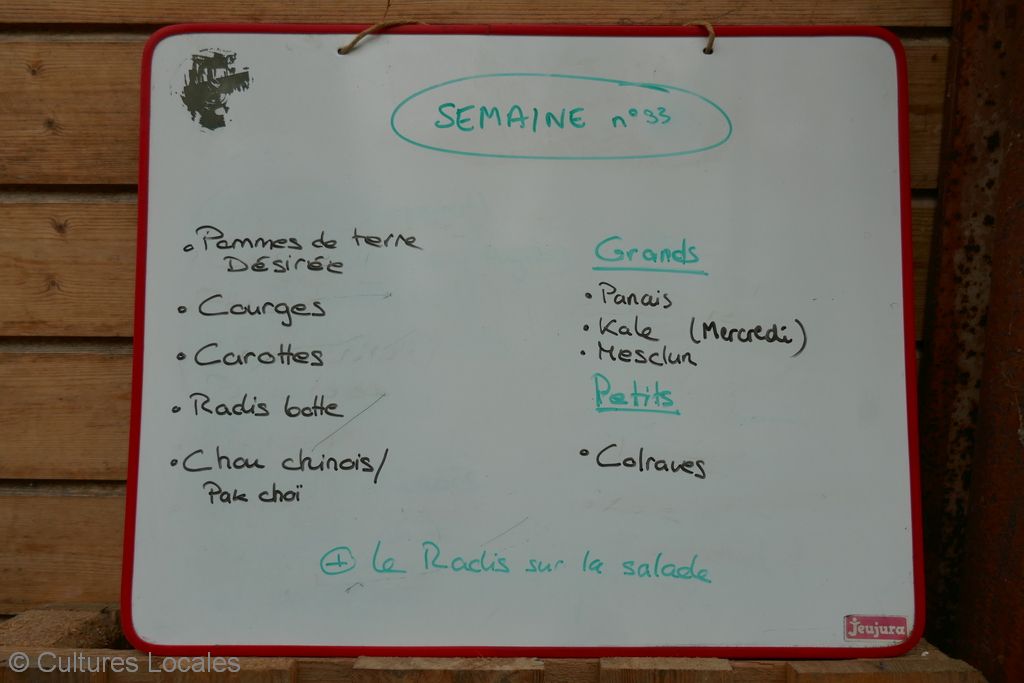 SEMAINE n°33
• Pommes de terre
Désirée
• Courges
• Carottes
• Radis botte
• Chou chinois/
Pak choï
Grands
• Panais
• Kale (Mercredi)
• Mesclun
Petits
• Colraves
+ le Radis sur la salade
Jeujura
© Cultures Locales